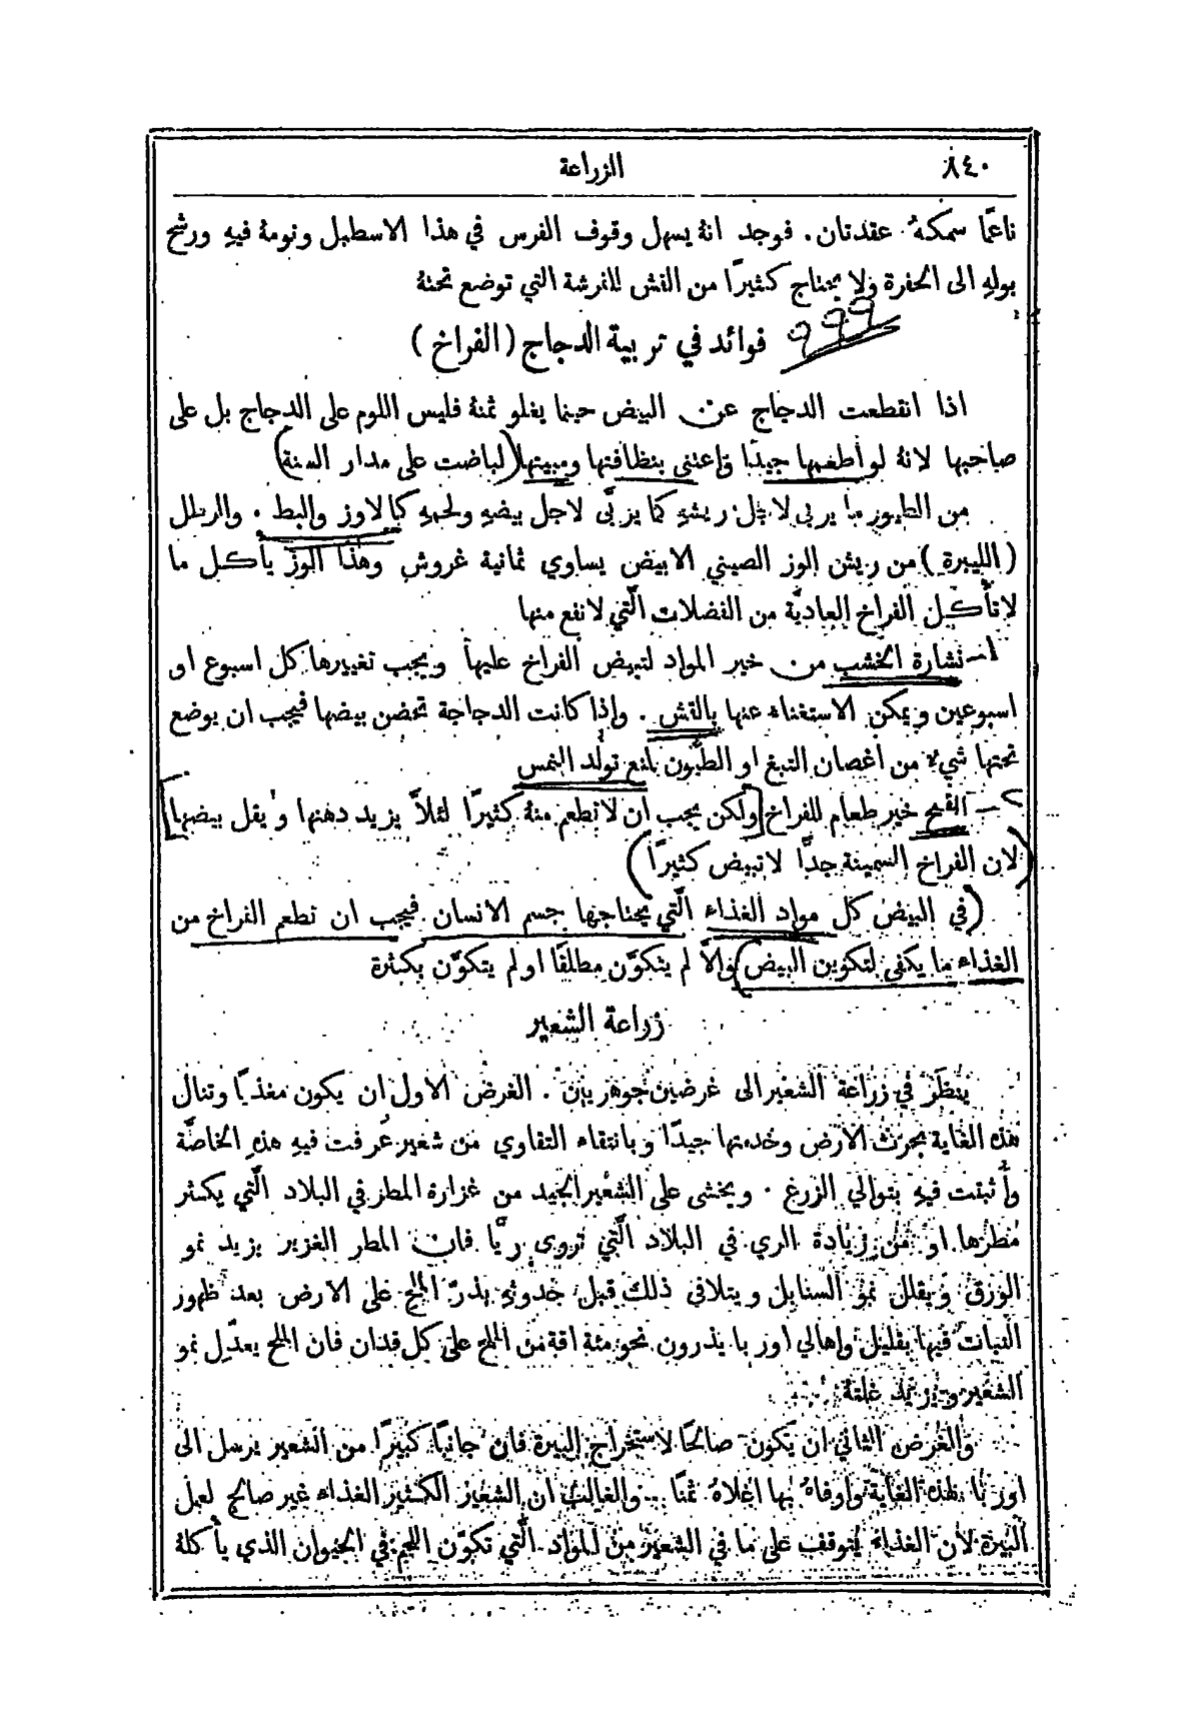 ٨٤٠ الزراعة
ناعمًا سمكهُ عقدتان. فوجد انهُ يسهل وقوف الفرس في هذا الاسطبل ونومهُ فيهِ ورشح
بولهِ الى الحفرة ولا يحتاج كثيرًا من القش للفرشة التي توضع تحتهُ
٩٩٩
فوائد في تربية الدجاج (الفراخ)
اذا انقطعت الدجاج عن البيض حينما يغلو ثمنهُ فليس اللوم على الدجاج بل على
صاحبها لانهُ لو أطعمها جيدًا واعتنى بنظافتها ومبيتها (لباضت على مدار السنة)
من الطيور ما يربى لاجل ريشهِ كما يربَّى لاجل بيضهِ ولحمهِ كالاوز والبط. والرطل
(الليبرة) من ريش الوز الصيني الابيض يساوي ثمانية غروش وهذا الوز يأكل ما
لا تأكل الفراخ العاديَّة من الفضلات الَّتي لا نفع منها
١- نشارة الخشب من خير المواد لتبيض الفراخ عليها ويجب تغييرها كل اسبوع او
اسبوعين ويمكن الاستغناء عنها بالقش. واذا كانت الدجاجة تحضن بيضها فيجب ان يوضع
تحتها شيءٌ من اغصان التبغ او الطيُّون لمنع تولُّد النمس
٢- القمح خير طعام للفراخ [ولكن يجب ان لا تطعم منهُ كثيرًا لئلاَّ يزيد دهنها ويقل بيضها]
(لان الفراخ السمينة جدًّا لا تبيض كثيرًا)
(في البيض كل مواد الغذاء الَّتي يحتاجها جسم الانسان فيجب ان تطعم الفراخ من
الغذاء ما يكفي لتكوين البيض) والاَّ لم يتكوَّن مطلقًا او لم يتكوَّن بكثرة
زراعة الشعير
يُنظَر في زراعة الشعير الى غرضين جوهريين. الغرض الاول ان يكون مغذيًا وتنال
هذه الغاية بحرث الارض وخدمتها جيدًا وبانتقاء التقاوي من شعير عُرفت فيهِ هذهِ الخاصَّة
وأُثبتت فيهِ بتوالي الزرع. ويخشى على الشعير الجيد من غزارة المطر في البلاد الَّتي يكثر
مطرها او من زيادة الري في البلاد الَّتي تروى ريًّا فان المطر الغزير يزيد نمو
الورق ويقلل نمو السنابل ويتلافى ذلك قبل حدوثهِ بذرّ الملح على الارض بعد ظهور
النبات فيها بقليل واهالي اوربا يذرون نحو مئة اقة من الملح على كل فدان فان الملح يعدّل نمو
الشعير ويزيد غلتهُ
والغرض الثاني ان يكون صالحًا لاستخراج البيرة فان جانبًا كبيرًا من الشعير يرسل الى
اوربا لهذه الغاية وأوفاهُ بها اغلاهُ ثمنًا. والغالب ان الشعير الكثير الغذاء غير صالح لعمل
البيرة لان الغذاء يتوقف على ما في الشعير من المواد الَّتي تكوّن اللحم في الحيوان الذي يأكلهُ